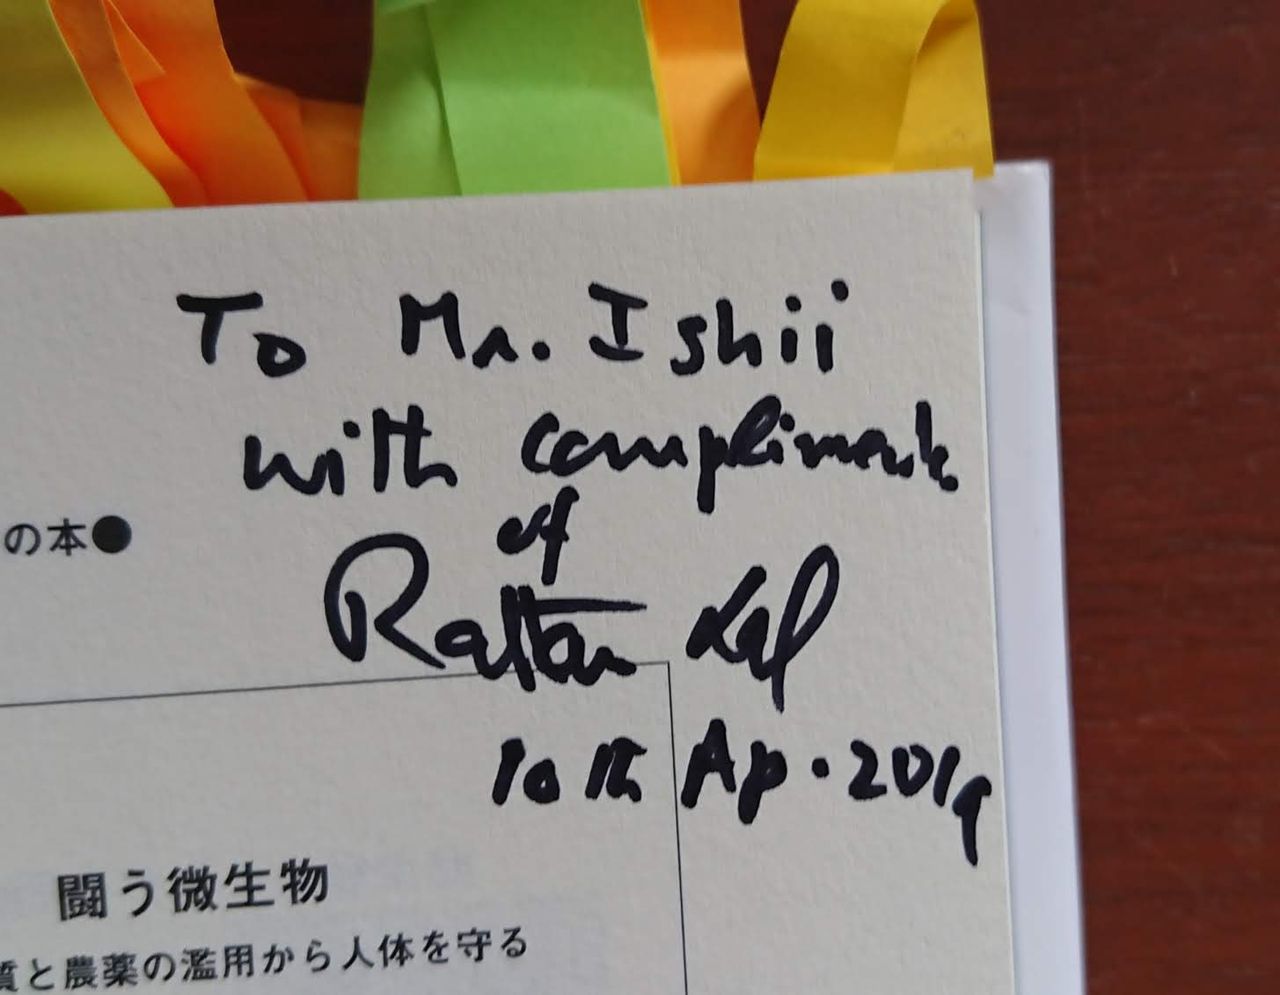 To Mr. Ishii
with compliments
of
Rattan Lal
10th Ap. 2019
の本●
闘う微生物
質と農薬の濫用から人体を守る